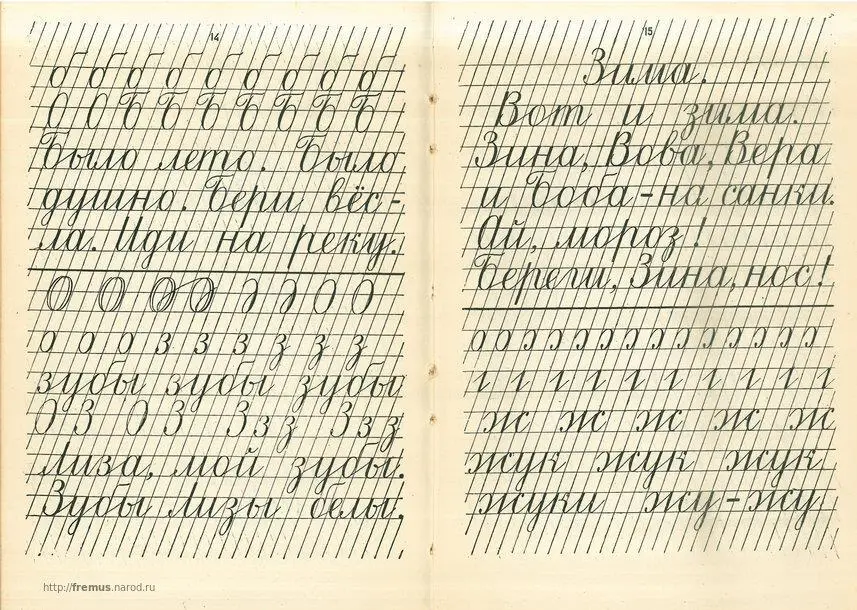 14
б б б б б б б б б
О О Б Б Б Б Б Б Б
Было лето. Было
душно. Бери вёс-
ла. Иди на реку.
о о о з з з з з з
зубы зубы зубы
О З О З Ззз Ззз
Лиза, мой зубы.
Зубы Лизы белы.
15
Зима.
Вот и зима.
Зина, Вова, Вера
и Боба-на санки.
Ай, мороз!
Береги, Зина, нос!
ж ж ж ж ж
жук жук жук
жуки жу-жу
http://fremus.narod.ru